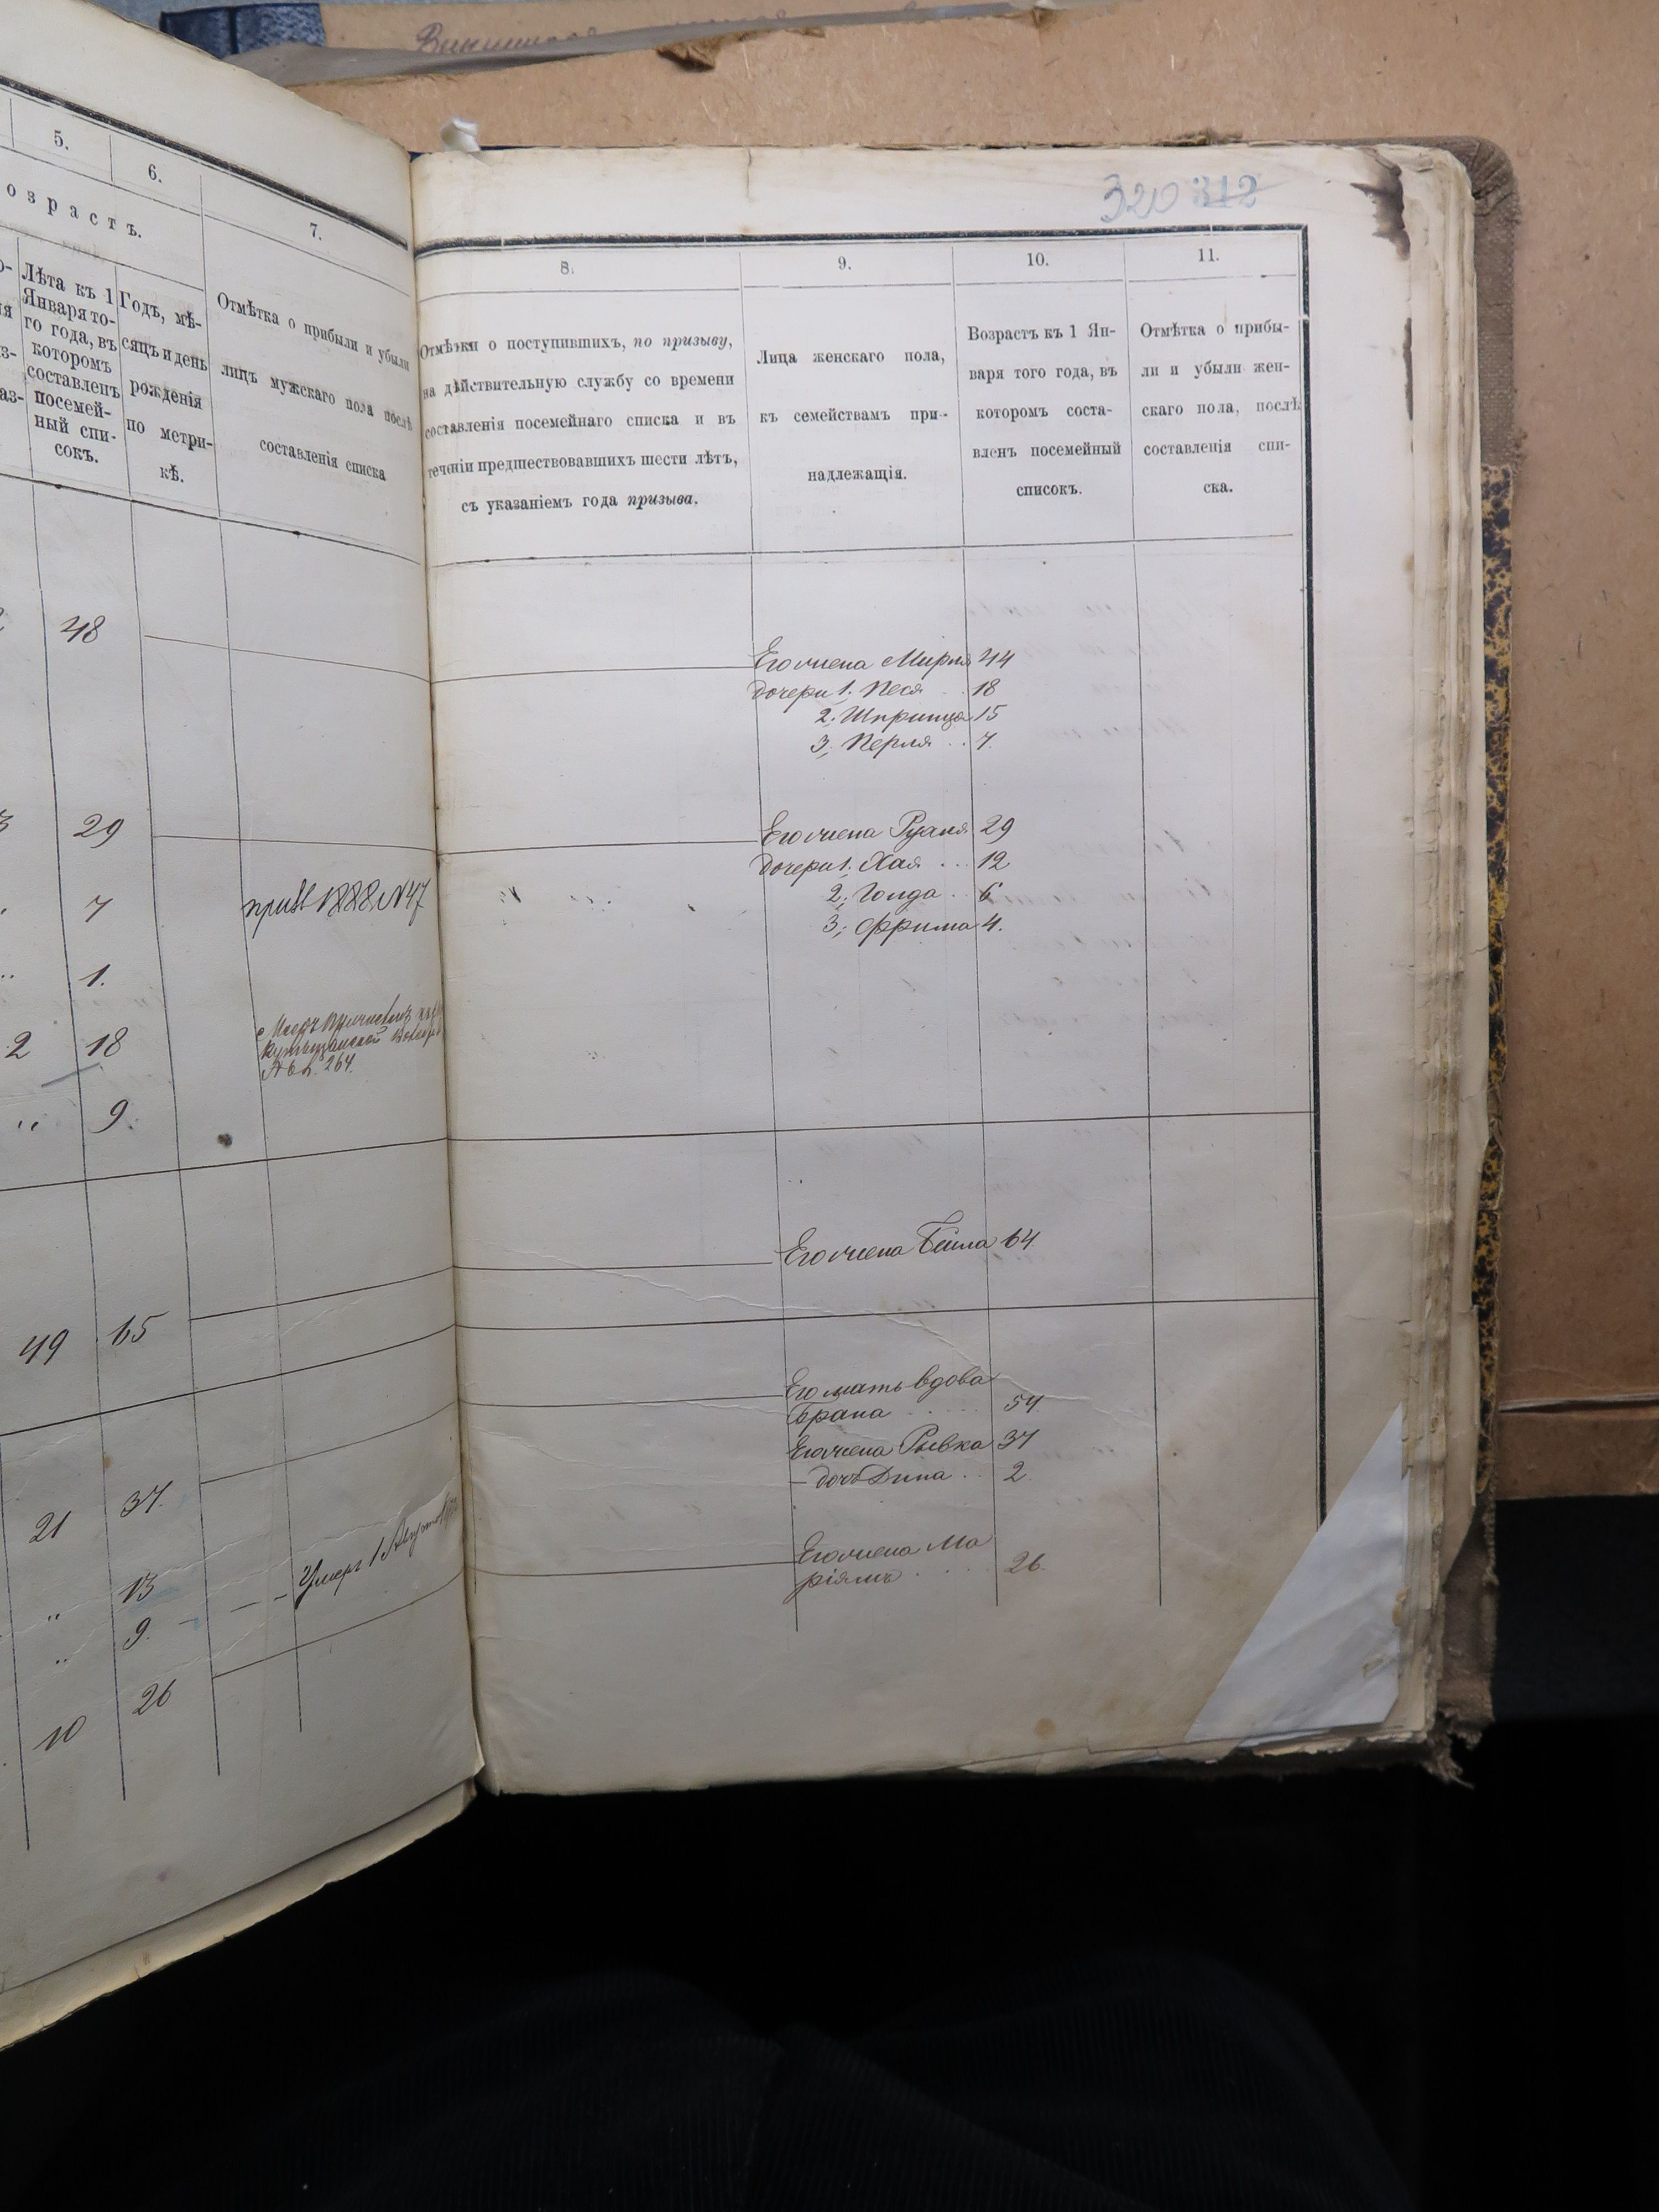 320 312
5.
6.
7.
озрастъ.
Лѣта къ 1
Января то-
го года, въ
которомъ
составленъ
посемей-
ный спи-
сокъ.
Годъ, мѣ-
сяцъ и день
рожденія
по метри-
кѣ.
Отмѣтка о прибыли и убыли
лицъ мужскаго пола послѣ
составленія списка
48
29
7
прив 1888 №47
1.
2 18
№ 264.
9
49 65
21 37.
13
9. Умеръ 1 Августа
10 26
8.
9.
10.
11.
Отмѣтки о поступившихъ, по призыву,
на дѣйствительную службу со времени
составленія посемейнаго списка и въ
теченіи предшествовавшихъ шести лѣтъ,
съ указаніемъ года призыва.
Лица женскаго пола,
къ семействамъ при-
надлежащія.
Возрастъ къ 1 Ян-
варя того года, въ
которомъ соста-
вленъ посемейный
списокъ.
Отмѣтка о прибы-
ли и убыли жен-
скаго пола, послѣ
составленія спи-
ска.
Его жена Мирля 44
дочери 1. Песя 18
2. Шпринца 15
3; Перля 7.
Его жена Рузя 29
дочери 1. Хая 12
2; Голда 6
3; Фрима 4.
Его жена Бейла 64
Его мать вдова
Брана 54.
Его жена Рывка 37
дочь Дина 2
Его жена Ма
ріямъ 26.